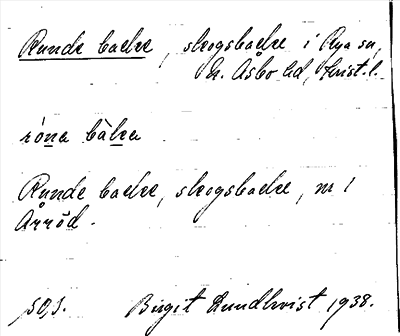 Runde backe, skogsbacke i Rya sn,
N. Åsbo hd, Krist. l.
róna bàka
Runde backe, skogsbacke, nr 1
Arröd.
50,1. Birgit Lundkvist 1938.